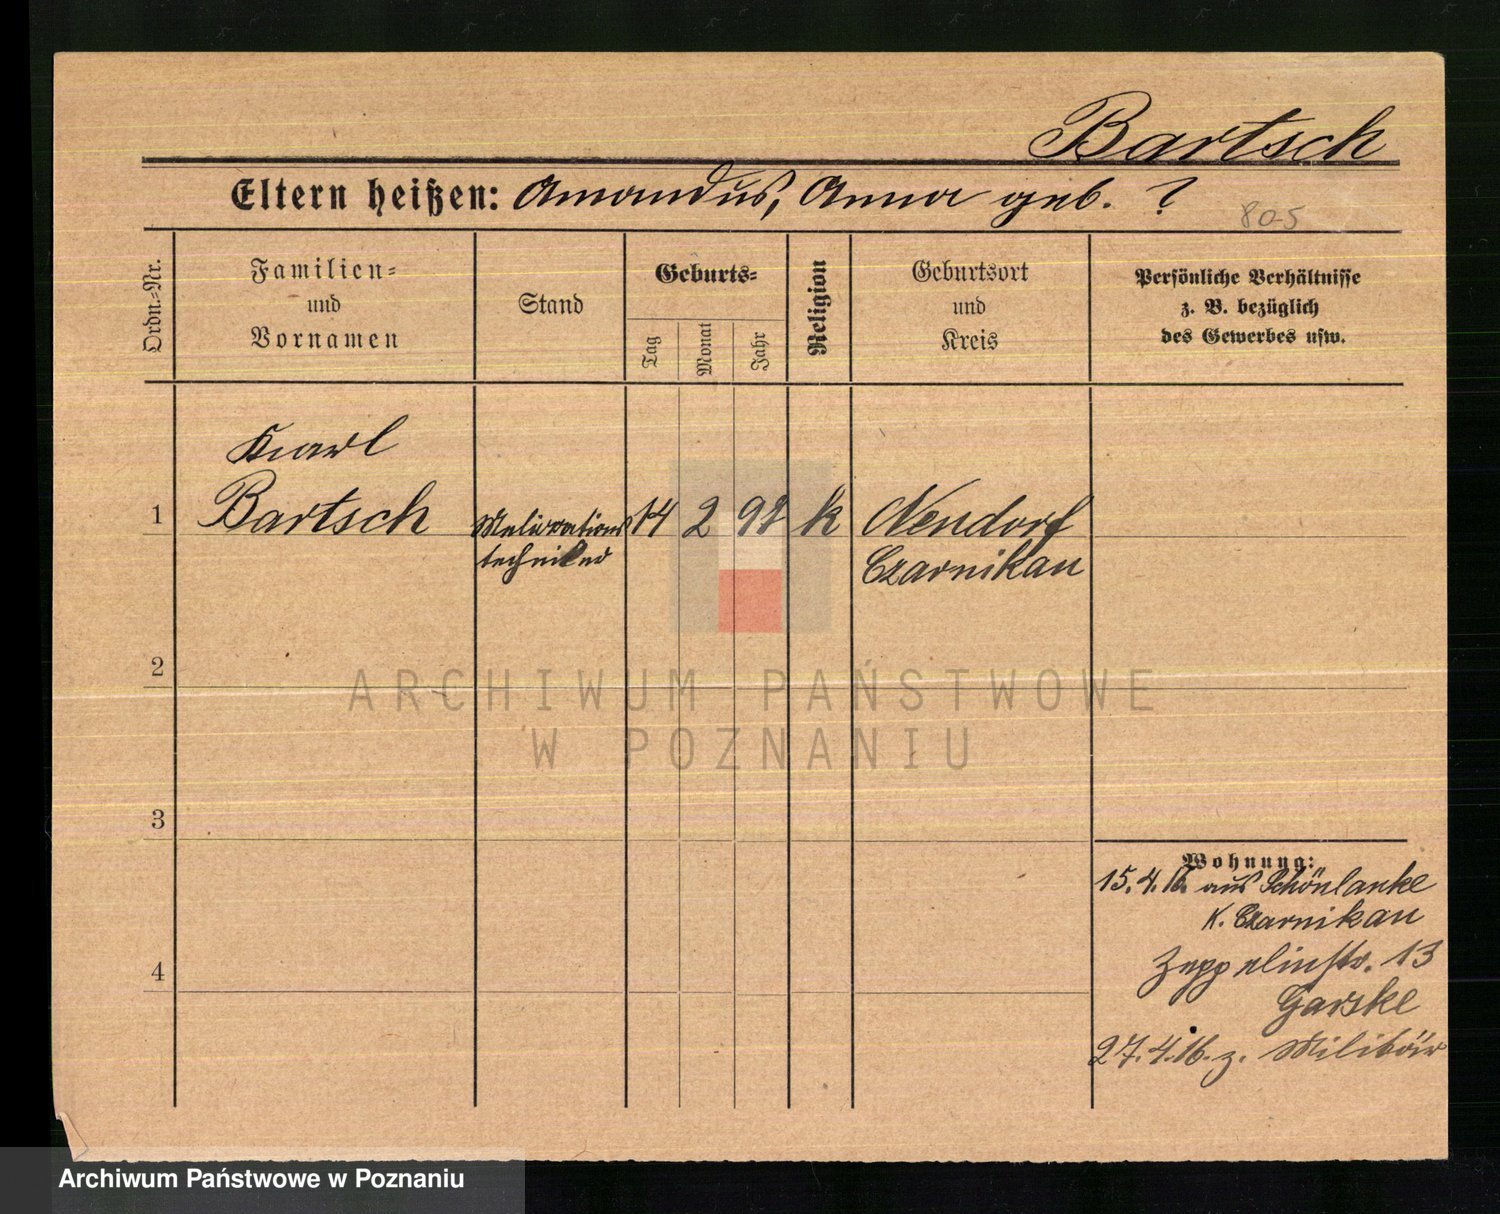 Bartsch
Eltern heißen: Amandus, Anna geb. ?
80-5
Ordn.-Nr.
Familien-
und
Vornamen
Stand
Geburts-
Tag
Monat
Jahr
Religion
Geburtsort
und
Kreis
Persönliche Verhältnisse
z. B. bezüglich
des Gewerbes usw.
Karl
1 Bartsch Meliorations 14 2 98 k Neudorf
techniker Czarnikau
2
ARCHIWUM PAŃSTWOWE
W POZNANIU
3
Wohnung:
15.4.16. aus Schönlanke
K. Czarnikau
4 Zeppelinstr. 13
Garske
27.4.16. z. Militär
Archiwum Państwowe w Poznaniu